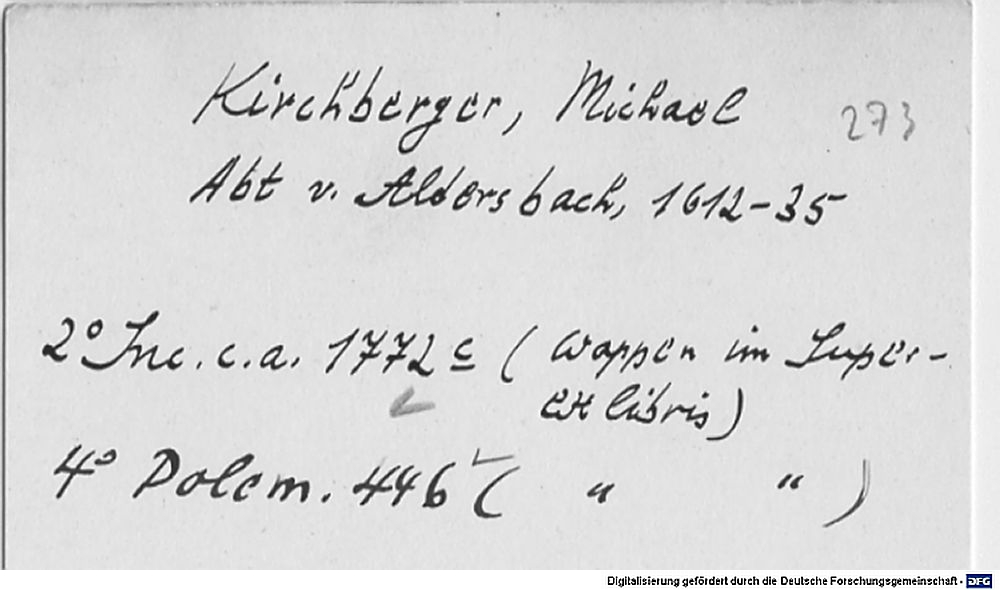 Kirchberger, Michael
273
Abt v. Aldersbach, 1612-35
2° Inc. c. a. 1772 c (Wappen im Super-
exlibris)
4° Polem. 446 ( " " )
Digitalisierung gefördert durch die Deutsche Forschungsgemeinschaft - DFG